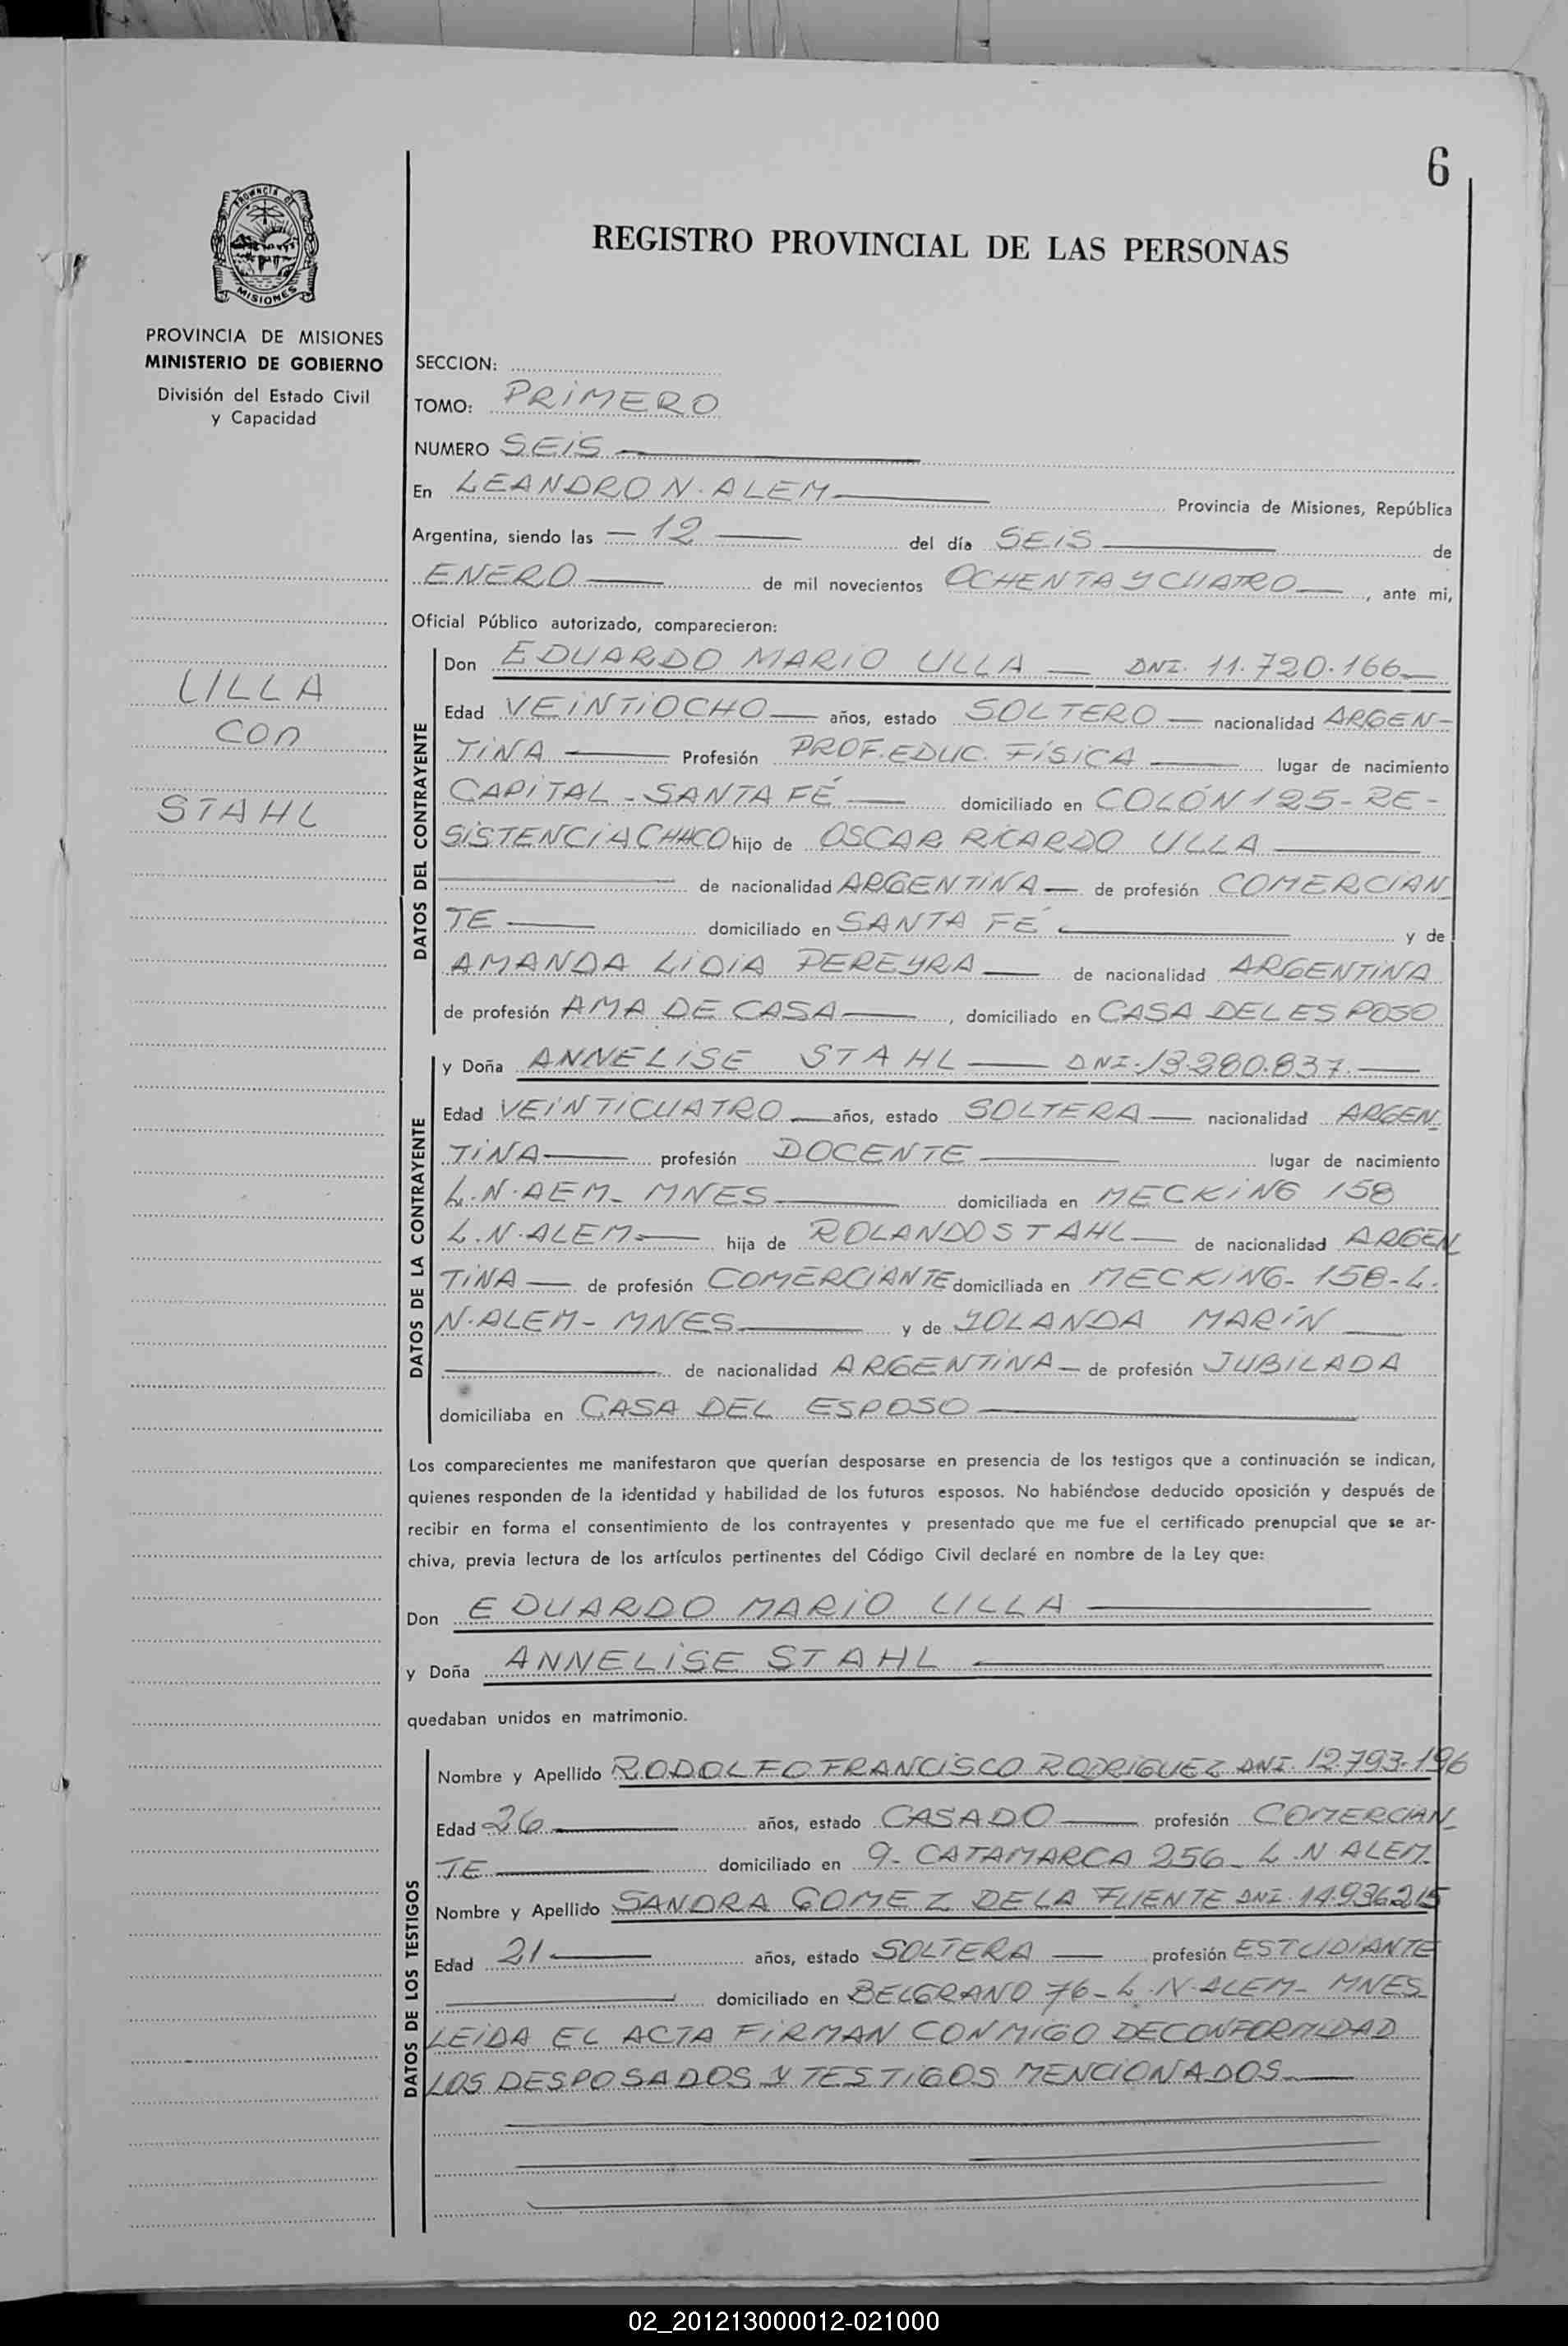 6
PROVINCIA DE
MISIONES
REGISTRO PROVINCIAL DE LAS PERSONAS
PROVINCIA DE MISIONES
MINISTERIO DE GOBIERNO
División del Estado Civil
y Capacidad
ULLA
con
STAHL
SECCION:
TOMO: PRIMERO
NUMERO SEIS
En LEANDRO N. ALEM Provincia de Misiones, República
Argentina, siendo las - 12 del día SEIS de
ENERO de mil novecientos OCHENTA Y CUATRO, ante mi,
Oficial Público autorizado, comparecieron:
DATOS DEL CONTRAYENTE
Don EDUARDO MARIO ULLA DNI. 11.720.166
Edad VEINTIOCHO años, estado SOLTERO nacionalidad ARGEN-
TINA Profesión PROF. EDUC. FÍSICA lugar de nacimiento
CAPITAL - SANTA FÉ domiciliado en COLÓN 125 - RE-
SISTENCIA CHACO hijo de OSCAR RICARDO ULLA
de nacionalidad ARGENTINA de profesión COMERCIAN
TE domiciliado en SANTA FÉ y de
AMANDA LIDIA PEREYRA de nacionalidad ARGENTINA
de profesión AMA DE CASA, domiciliado en CASA DEL ESPOSO
DATOS DE LA CONTRAYENTE
y Doña ANNELISE STAHL DNI. 13.280.837.
Edad VEINTICUATRO años, estado SOLTERA nacionalidad ARGEN-
TINA profesión DOCENTE lugar de nacimiento
L.N. AEM - MNES domiciliada en MECKING 158
L.N. ALEM hija de ROLANDO STAHL de nacionalidad ARGEN
TINA de profesión COMERCIANTE domiciliada en MECKING - 158 - L.
N. ALEM - MNES y de YOLANDA MARÍN
de nacionalidad ARGENTINA de profesión JUBILADA
domiciliaba en CASA DEL ESPOSO
Los comparecientes me manifestaron que querían desposarse en presencia de los testigos que a continuación se indican,
quienes responden de la identidad y habilidad de los futuros esposos. No habiéndose deducido oposición y después de
recibir en forma el consentimiento de los contrayentes y presentado que me fue el certificado prenupcial que se ar-
chiva, previa lectura de los artículos pertinentes del Código Civil declaré en nombre de la Ley que:
Don EDUARDO MARIO ULLA
y Doña ANNELISE STAHL
quedaban unidos en matrimonio.
DATOS DE LOS TESTIGOS
Nombre y Apellido RODOLFO FRANCISCO RODRIGUEZ DNI. 12.793.196
Edad 26 años, estado CASADO profesión COMERCIAN-
TE domiciliado en 9 - CATAMARCA 256 - L.N ALEM.
Nombre y Apellido SANDRA GOMEZ DE LA FUENTE DNI. 14.936215
Edad 21 años, estado SOLTERA profesión ESTUDIANTE
domiciliado en BELGRANO 76 - L.N. ALEM - MNES
LEIDA EL ACTA FIRMAN CONMIGO DE CONFORMIDAD
LOS DESPOSADOS Y TESTIGOS MENCIONADOS.
02_201213000012-021000